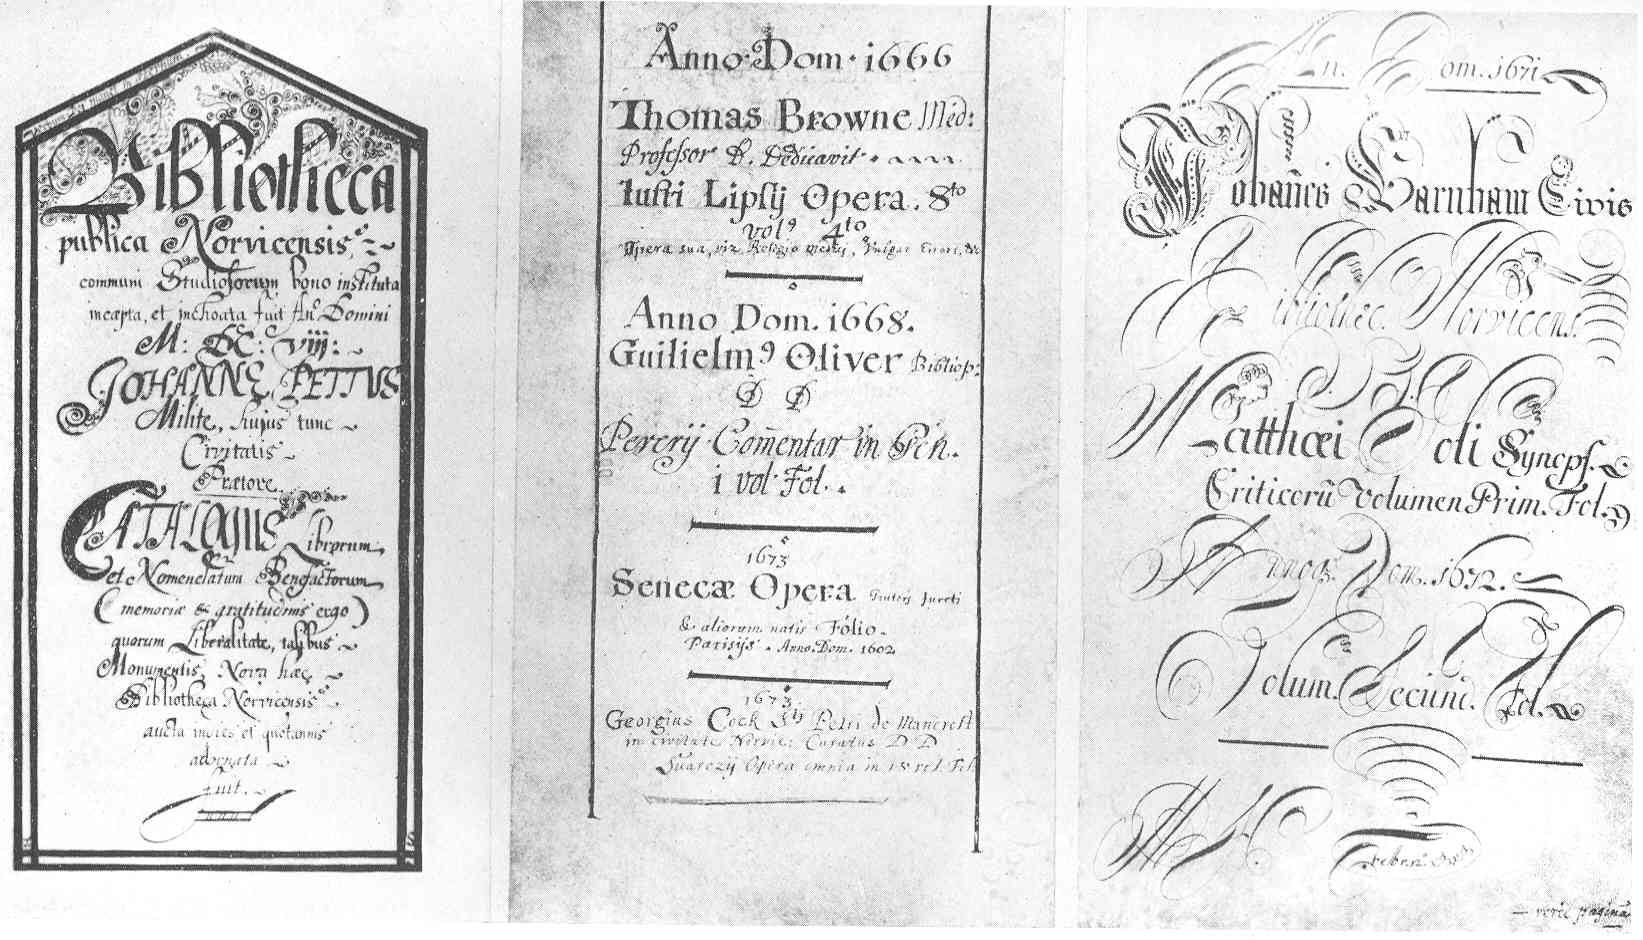 Bibliotheca
publica Norvicensis
communi Studiosorum bono instituta
incæpta, et inchoata fuit An° Domini
M: DC: viij:
JOHANNE PETTVS
Milite, hujus tunc
Civitatis
Prætore.
CATALOGUS Librorum,
et Nomenclatum Benefactorum
(memoriæ & gratitudinis ergo)
quorum Liberalitate, talibus
Monumentis, Nova hæc
Bibliotheca Norvicensis
aucta indies et quotannis
adornata
fuit.
Anno Dom. 1666
Thomas Browne Med:
Professor D. Dedicavit.
Iusti Lipsij Opera. 8to
vol9 4to
Opera sua, viz. Religio Medicj, Vulgar Errors, &c
Anno Dom. 1668.
Guilielm9 Oliver Bibliop:
D D
Pererij Com̄entar in Gen.
1 vol. Fol.
1673
Senecæ Opera
& aliorum notis Folio.
Parisijs. Anno. Dom. 1602
1673
Georgius Cock Sti Petri de Mancroft
in civitate Norvic: Curatus D D
Suarezij Opera omnia in 15 vol. Fol.
An. Dom. 1671
Johan̄es Barnham Civis
Norvicens.
D.D.
Matthœi Poli Synops.
Criticorū Volumen Prim. Fol.
Annoq. Dom. 1672.
Volum. Secund. Fol.
verte paginā